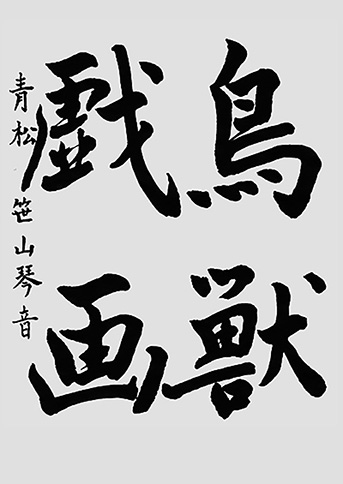 鳥獣
戯画
青松 笹山琴音